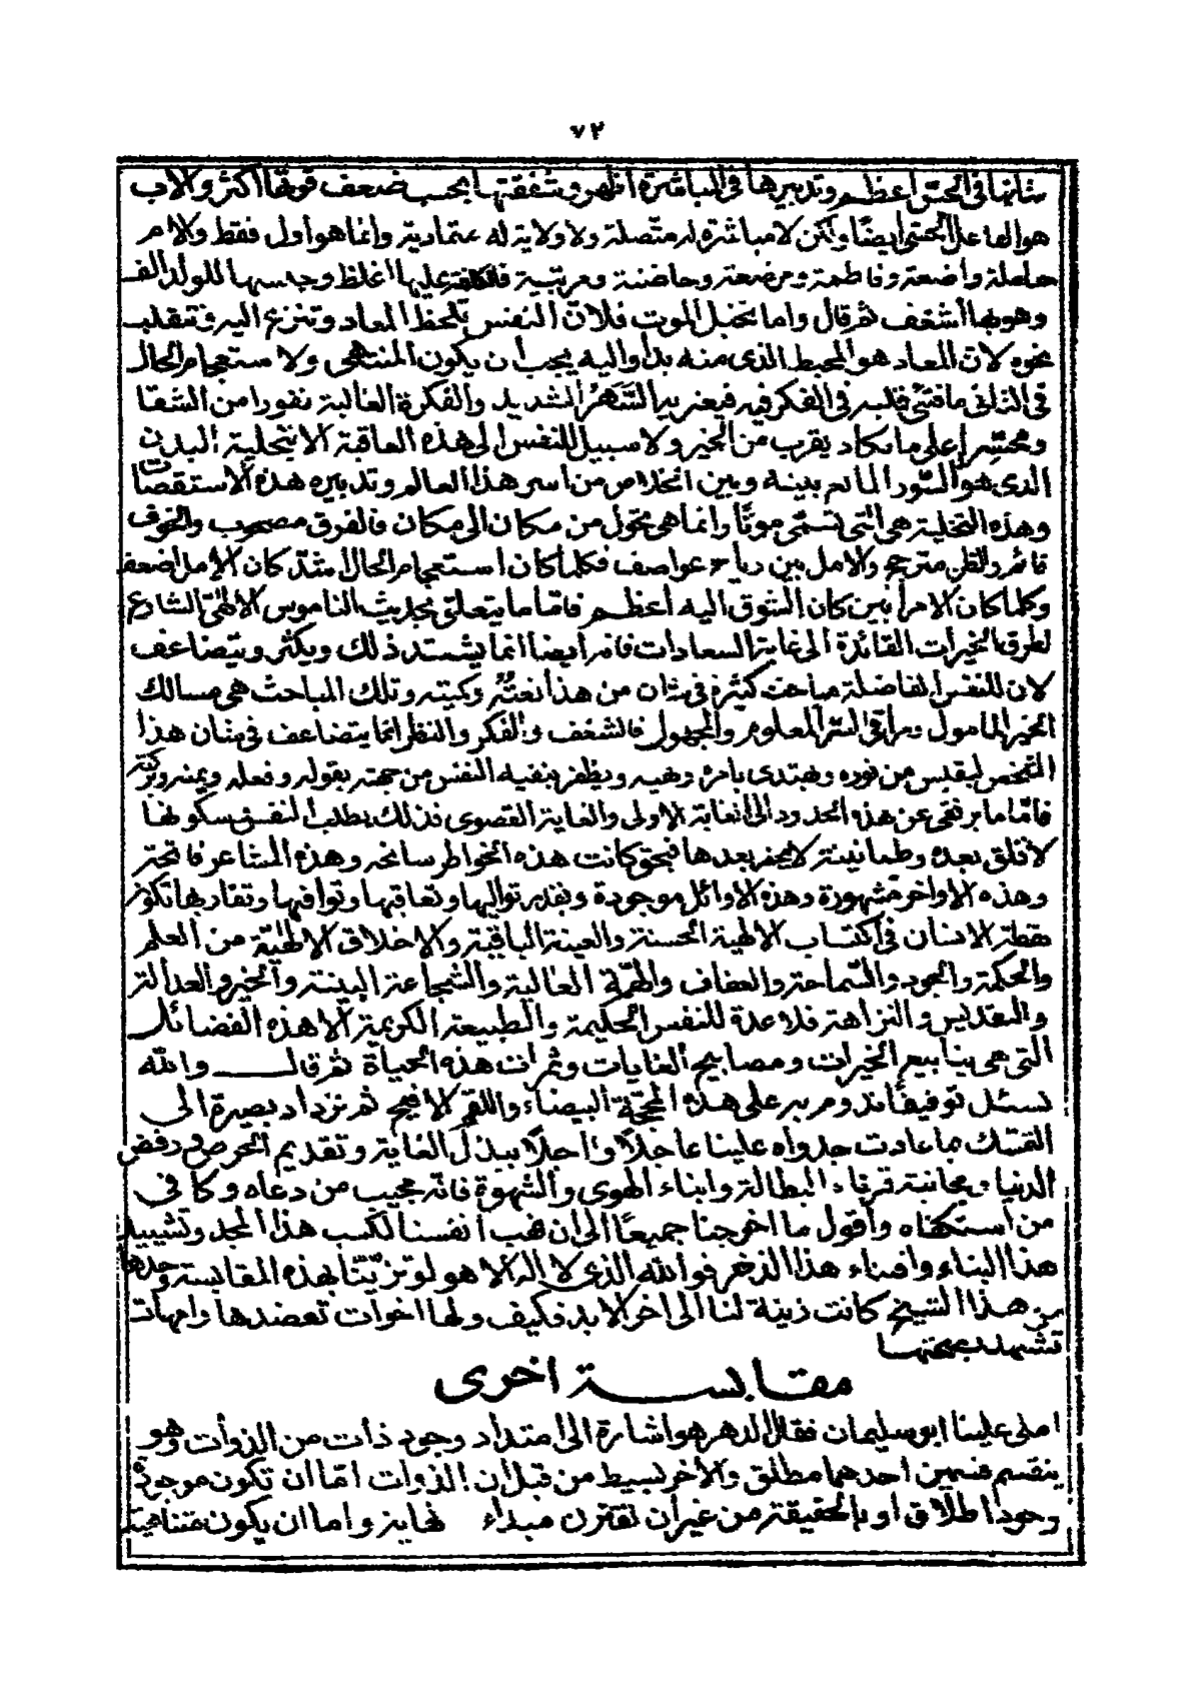 ٧٢
شانها في الحس اعظم وتدبيرها في المباشرة اظهر وشفقتها بحسب ضعف قوتها اكثر والاب
هو الفاعل الحق ايضا ولكن لا مباشرة له متصلة ولا ولاية له عتمادية وانما هو اول فقط والام
حاملة واضعة وفاطمة ومرضعة وحاضنة ومربتيية فالكلفة عليها اغلظ وجنسها للولد الف
وهو بها أشغف ثم قال واما تخيل الموت فلان النفس تلحظ المعاد وتنزع اليه وتنقلب
نحوه لان المعاد هو المحيط الذى منه بدأ واليه يجب أن يكون المنتهى ولا ستعجام الحال
فى الثانى ما فتئ قلبه فى الفكر فيه فيعتريه السهر الشديد والفكرة الغالبة نفورا من الشقا
وتحسّرا على ما يكاد يقرب من الخير ولا سبيل للنفس الى هذه العاقبة الا بتخلية البدن
الذى هو السّور المانع بينه وبين الخلاص من اسر هذا العالم وتدبيره هذه الاستقصّات
وهذه التخلية هى التى تسمّى موتًا وانما هى تحول من مكان الى مكان فالفرق مصحوب والخوف
قائم والظن مترجح والامل بين رياح عواصف فكلما كان استعجام الحال اشدّ كان الأمل اضعف
وكلما كان الامر أبين كان الشوق اليه أعظم فامّا ما يتعلق بحديث الناموس الالهىّ الشارع
لطرق الخيرات القائدة الى غاية السعادات فانه أيضا انما يشتد ذلك ويكثر ويتضاعف
لان للنفس الفاضلة مباحث كثيرة فى شان من هذا نعتُهُ وكيته وتلك المباحث هى مسالك
الخير المأمول ومراقى السّر المعلوم والمجهول فالشغف والفكر والنظر انما يتضاعف فى شان هذا
الشخص ليقبس من نوره ويهتدى بامره ونهيه ويظفر ببغيه النفس من جهته بقوله وفعله ويمنه وبركته
فامّا ما يرتقى عن هذه الحدود الى الغاية الاولى والغاية القصوى فذلك يطلب النفس سكونها
لا قلق بعده وطمانينة لا يحفز بعدها فبحق كانت هذه الخواطر سانحه وهذه المشاعر فاتحة
وهذه الاواخر مشهودة وهذه الاوائل موجودة وبقدر تواليها وتعاقبها وتوافيها وتقاربها تكون
يقظة الانسان فى اكتساب الالهية الحسنة والعينة الباقية والاخلاق الالهيّة من العلم
والحكمة والجود والسّماحة والعفاف والهمّة العالية والشجاعة البينة والخير والعدالة
والتقديس والنزاهة فلا عدة للنفس الحكيمة والطبيعة الكريمة الا هذه الفضائل
التى هى ينابيع الخيرات ومصابيح الغايات وثمرات هذه الحياة ثم قال والله
نسئل توفيقًا ندوم به على هذه المحجّة البيضاء واللقم الافيح ثم نزداد بصيرة الى
التمسّك بما عادت جدواه علينا عاجلًا وآجلًا ببذل الغاية وتقديم الحرص ورفض
الدنيا ومجانبة قرناء البطالة وابناء الهوى والشهوة فانه مجيب من دعاه وكافى
من استكفاه وأقول ما احوجنا جميعًا الى ان نهب أنفسنا لكسب هذا المجد وتشييد
هذا البناء واقتناء هذا الذخر فوالله الذى لا اله الا هو لو تزيّنّا بهذه المقابسة وحدها
من هذا الشيخ كانت زينة لنا الى آخر الابد فكيف ولها اخوات تعضدها وامهات
تشهد بصحتها
مقابسة اخرى
املى علينا ابو سليمان فقال الدهر هو اشارة الى امتداد وجود ذات من الذوات وهو
ينقسم قسمين احدهما مطلق والآخر بسيط من قبل ان الذوات امّا ان تكون موجودة
وجودا طلاق او بالحقيقة من غير ان تقترن مبداء نهاية واما ان يكون متناهية